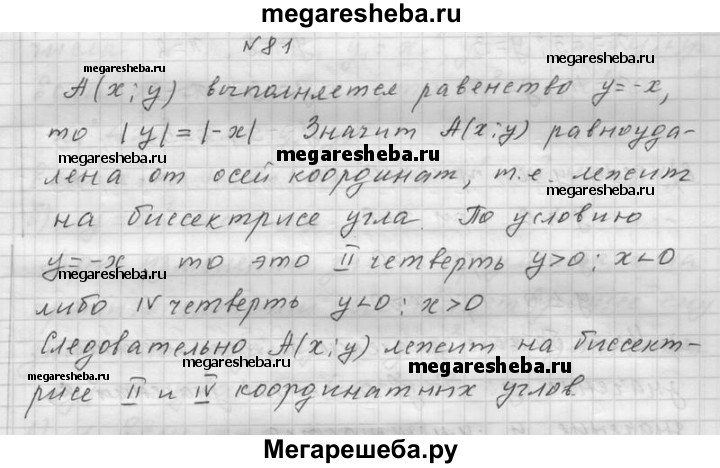 megaresheba.ru
№81
megaresheba.ru
megaresheba.ru
A(x; y) выполняется равенство y=-x,
то |y|=|-x| Значит A(x;y) равноуда-
megaresheba.ru
megaresheba.ru
лена от осей координат, т.е. лежит
на биссектрисе угла. По условию
megaresheba.ru
megaresheba.ru
y=-x то это II четверть y>0; x<0
megaresheba.ru
либо IV четверть y<0; x>0
Следовательно A(x;y) лежит на биссект-
megaresheba.ru
megaresheba.ru
рисе II и IV координатных углов
megaresheba.ru
megaresheba.ru
Мегарешеба.ру